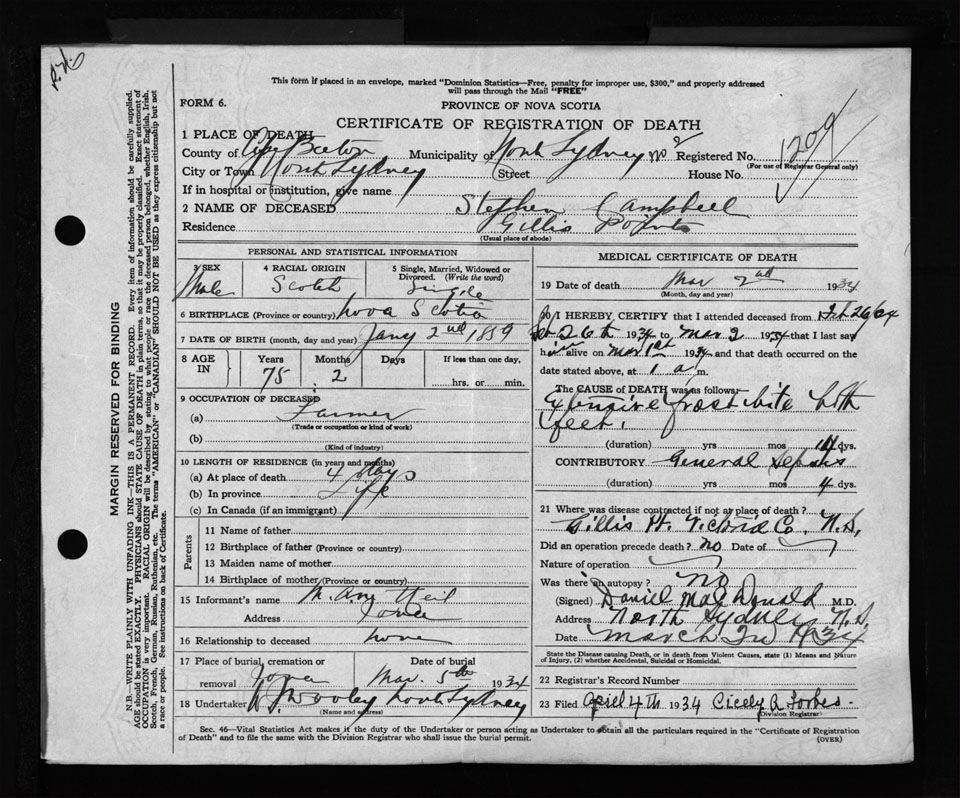 This form if placed in an envelope, marked "Dominion Statistics—Free, penalty for improper use, $300," and properly addressed
will pass through the Mail "FREE"
FORM 6.
PROVINCE OF NOVA SCOTIA
CERTIFICATE OF REGISTRATION OF DEATH
1209
1 PLACE OF DEATH
County of Cape Breton Municipality of North Sydney No 2 Registered No.
(For use of Registrar General only)
City or Town North Sydney (Street House No.
If in hospital or institution, give name
2 NAME OF DECEASED Stephen Campbell
Residence Gillis Point
(Usual place of abode)
PERSONAL AND STATISTICAL INFORMATION
3 SEX Male
4 RACIAL ORIGIN Scotch
5 Single, Married, Widowed or Divorced. (Write the word) Single
6 BIRTHPLACE (Province or country) Nova Scotia
7 DATE OF BIRTH (month, day and year) Jany 2nd 1859
8 AGE IN Years 75 Months 2 Days If less than one day, hrs. or min.
9 OCCUPATION OF DECEASED
(a) Farmer
(Trade or occupation or kind of work)
(b)
(Kind of industry)
10 LENGTH OF RESIDENCE (in years and months)
(a) At place of death 4 days
(b) In province Life
(c) In Canada (if an immigrant)
Parents
11 Name of father
12 Birthplace of father (Province or country)
13 Maiden name of mother
14 Birthplace of mother (Province or country)
15 Informant's name M. Ann Neil
Address Iona
16 Relationship to deceased none
17 Place of burial, cremation or removal Iona
Date of burial Mar. 5th 1934
18 Undertaker Wooley North Sydney
(Name and address)
MEDICAL CERTIFICATE OF DEATH
19 Date of death Mar 2nd 1934
(Month, day and year)
20 I HEREBY CERTIFY that I attended deceased from Feb 26/34
Feb 26th 1934 to Mar 2 1934 that I last saw
him alive on Mar 1st 1934 and that death occurred on the
date stated above, at 1 a m.
The CAUSE OF DEATH was as follows:
Extensive frost bite both
feet.
(duration) yrs mos 14 dys.
CONTRIBUTORY General Sepsis
(duration) yrs mos 4 dys.
21 Where was disease contracted if not at place of death?
Gillis Pt. Victoria Co. N.S.
Did an operation precede death? no Date of
Nature of operation
Was there an autopsy? No
(Signed) Daniel MacDonald M.D.
Address North Sydney N.S.
Date March 2nd 1934
State the Disease causing Death, or in death from Violent Causes, state (1) Means and Nature
of Injury, (2) whether Accidental, Suicidal or Homicidal.
22 Registrar's Record Number
23 Filed April 4th 1934 Cicely A Forbes.
(Division Registrar)
Sec. 46—Vital Statistics Act makes it the duty of the Undertaker or person acting as Undertaker to obtain all the particulars required in the "Certificate of Registration
of Death" and to file the same with the Division Registrar who shall issue the burial permit.
(OVER)
MARGIN RESERVED FOR BINDING
N.B.—WRITE PLAINLY WITH UNFADING INK—THIS IS A PERMANENT RECORD. Every item of information should be carefully supplied.
AGE should be stated EXACTLY. PHYSICIANS should STATE CAUSE OF DEATH in plain terms, so that it may be properly classified. Exact statement of
OCCUPATION is very important. RACIAL ORIGIN will be described by stating to what people or race the deceased person belonged, whether English, Irish,
Scotch, French, German, Russian, Ruthenian, etc. The terms "AMERICAN" or "CANADIAN" SHOULD NOT BE USED as they express citizenship but not
a race or people. See instructions on back of Certificate.